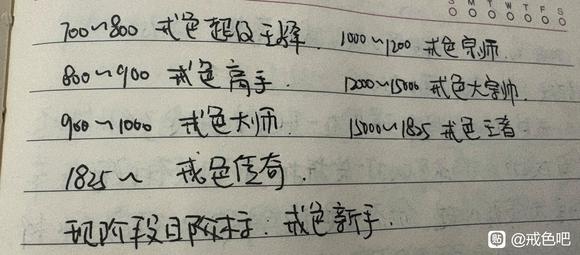 S M T W T F S
700~800 戒色超级王牌 1000~1200 戒色宗师
800~900 戒色高手 12000~15000 戒色大宗师
900~1000 戒色大师 15000~1825 戒色王者
1825~ 戒色传奇
现阶段目标: 戒色新手.
贴 @戒色吧